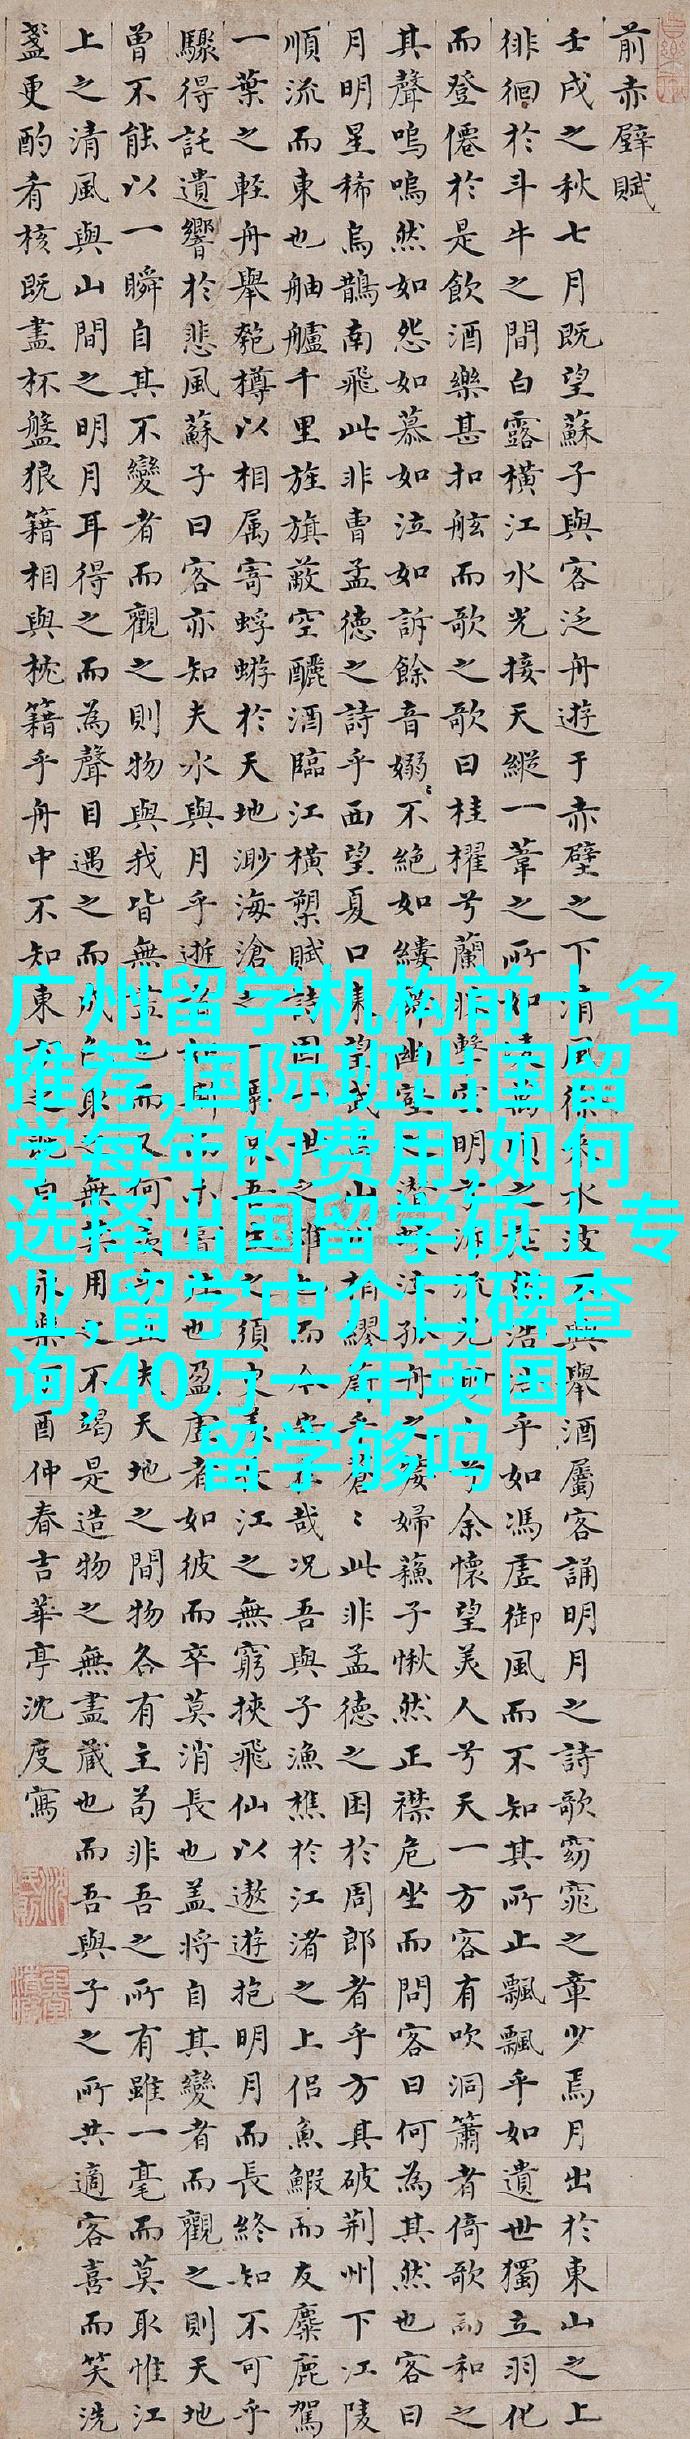 前赤壁賦
壬戌之秋七月既望蘇子與客泛舟遊于赤壁之下清風徐來水波興舉酒屬客誦明月之詩歌窈窕之章少焉月出於東山之上
徘徊於斗牛之間白露橫江水光接天縱一葦之所如萬頃之浩乎如馮虛御風而不知其所止飄飄乎如遺世獨立羽化
而登僊於是飲酒樂甚扣舷而歌之歌曰桂櫂兮蘭擊空明兮流光兮余懷望美人兮天一方客有吹洞簫者倚歌而和之
其聲嗚嗚然如怨如慕如泣如訴餘音嫋〻不絕如縷幽壑潛泣孤舟之嫠婦蘇子愀然正襟危坐而問客曰何為其然也客曰
月明星稀烏鵲南飛此非曹孟德之詩乎西望夏口東望武山相繆乎蒼〻此非孟德之困於周郎者乎方其破荊州下江陵
順流而東也舳艫千里旌旗蔽空釃酒臨江橫槊賦詩固世之雄而今哉況吾與子漁樵於江渚之上侶魚鰕而友麋鹿駕
一葉之輕舟舉匏樽以相属寄蜉蝣於天地渺海滄之一吾之須長江之無窮挾飛仙以遨遊抱明月而長終知不可乎
驟得託遺響於悲風蘇子曰客亦知夫水與月乎逝者未嘗也盈虛者如彼而卒莫消長也盖將自其變者而觀之則天地
曾不能以一瞬自其不變者而觀之則物與我皆無盡也而又何羨夫天地之間物各有主苟非吾之所有雖一毫而莫取惟江
上之清風與山間之明月耳得之而為聲目遇之而成色取之無用之不竭是造物之無盡藏也而吾與子之所共適客喜而笑洗
盞更酌肴核既盡杯盤狼籍相與枕籍乎舟中不知東之既白永樂酉仲春吉華亭沈度寫
广州留学机构前十名
推荐,国际班出国留
学每年的费用,如何
选择出国留学硕士专
业,留学中介口碑查
询,40万一年英国
留学够吗